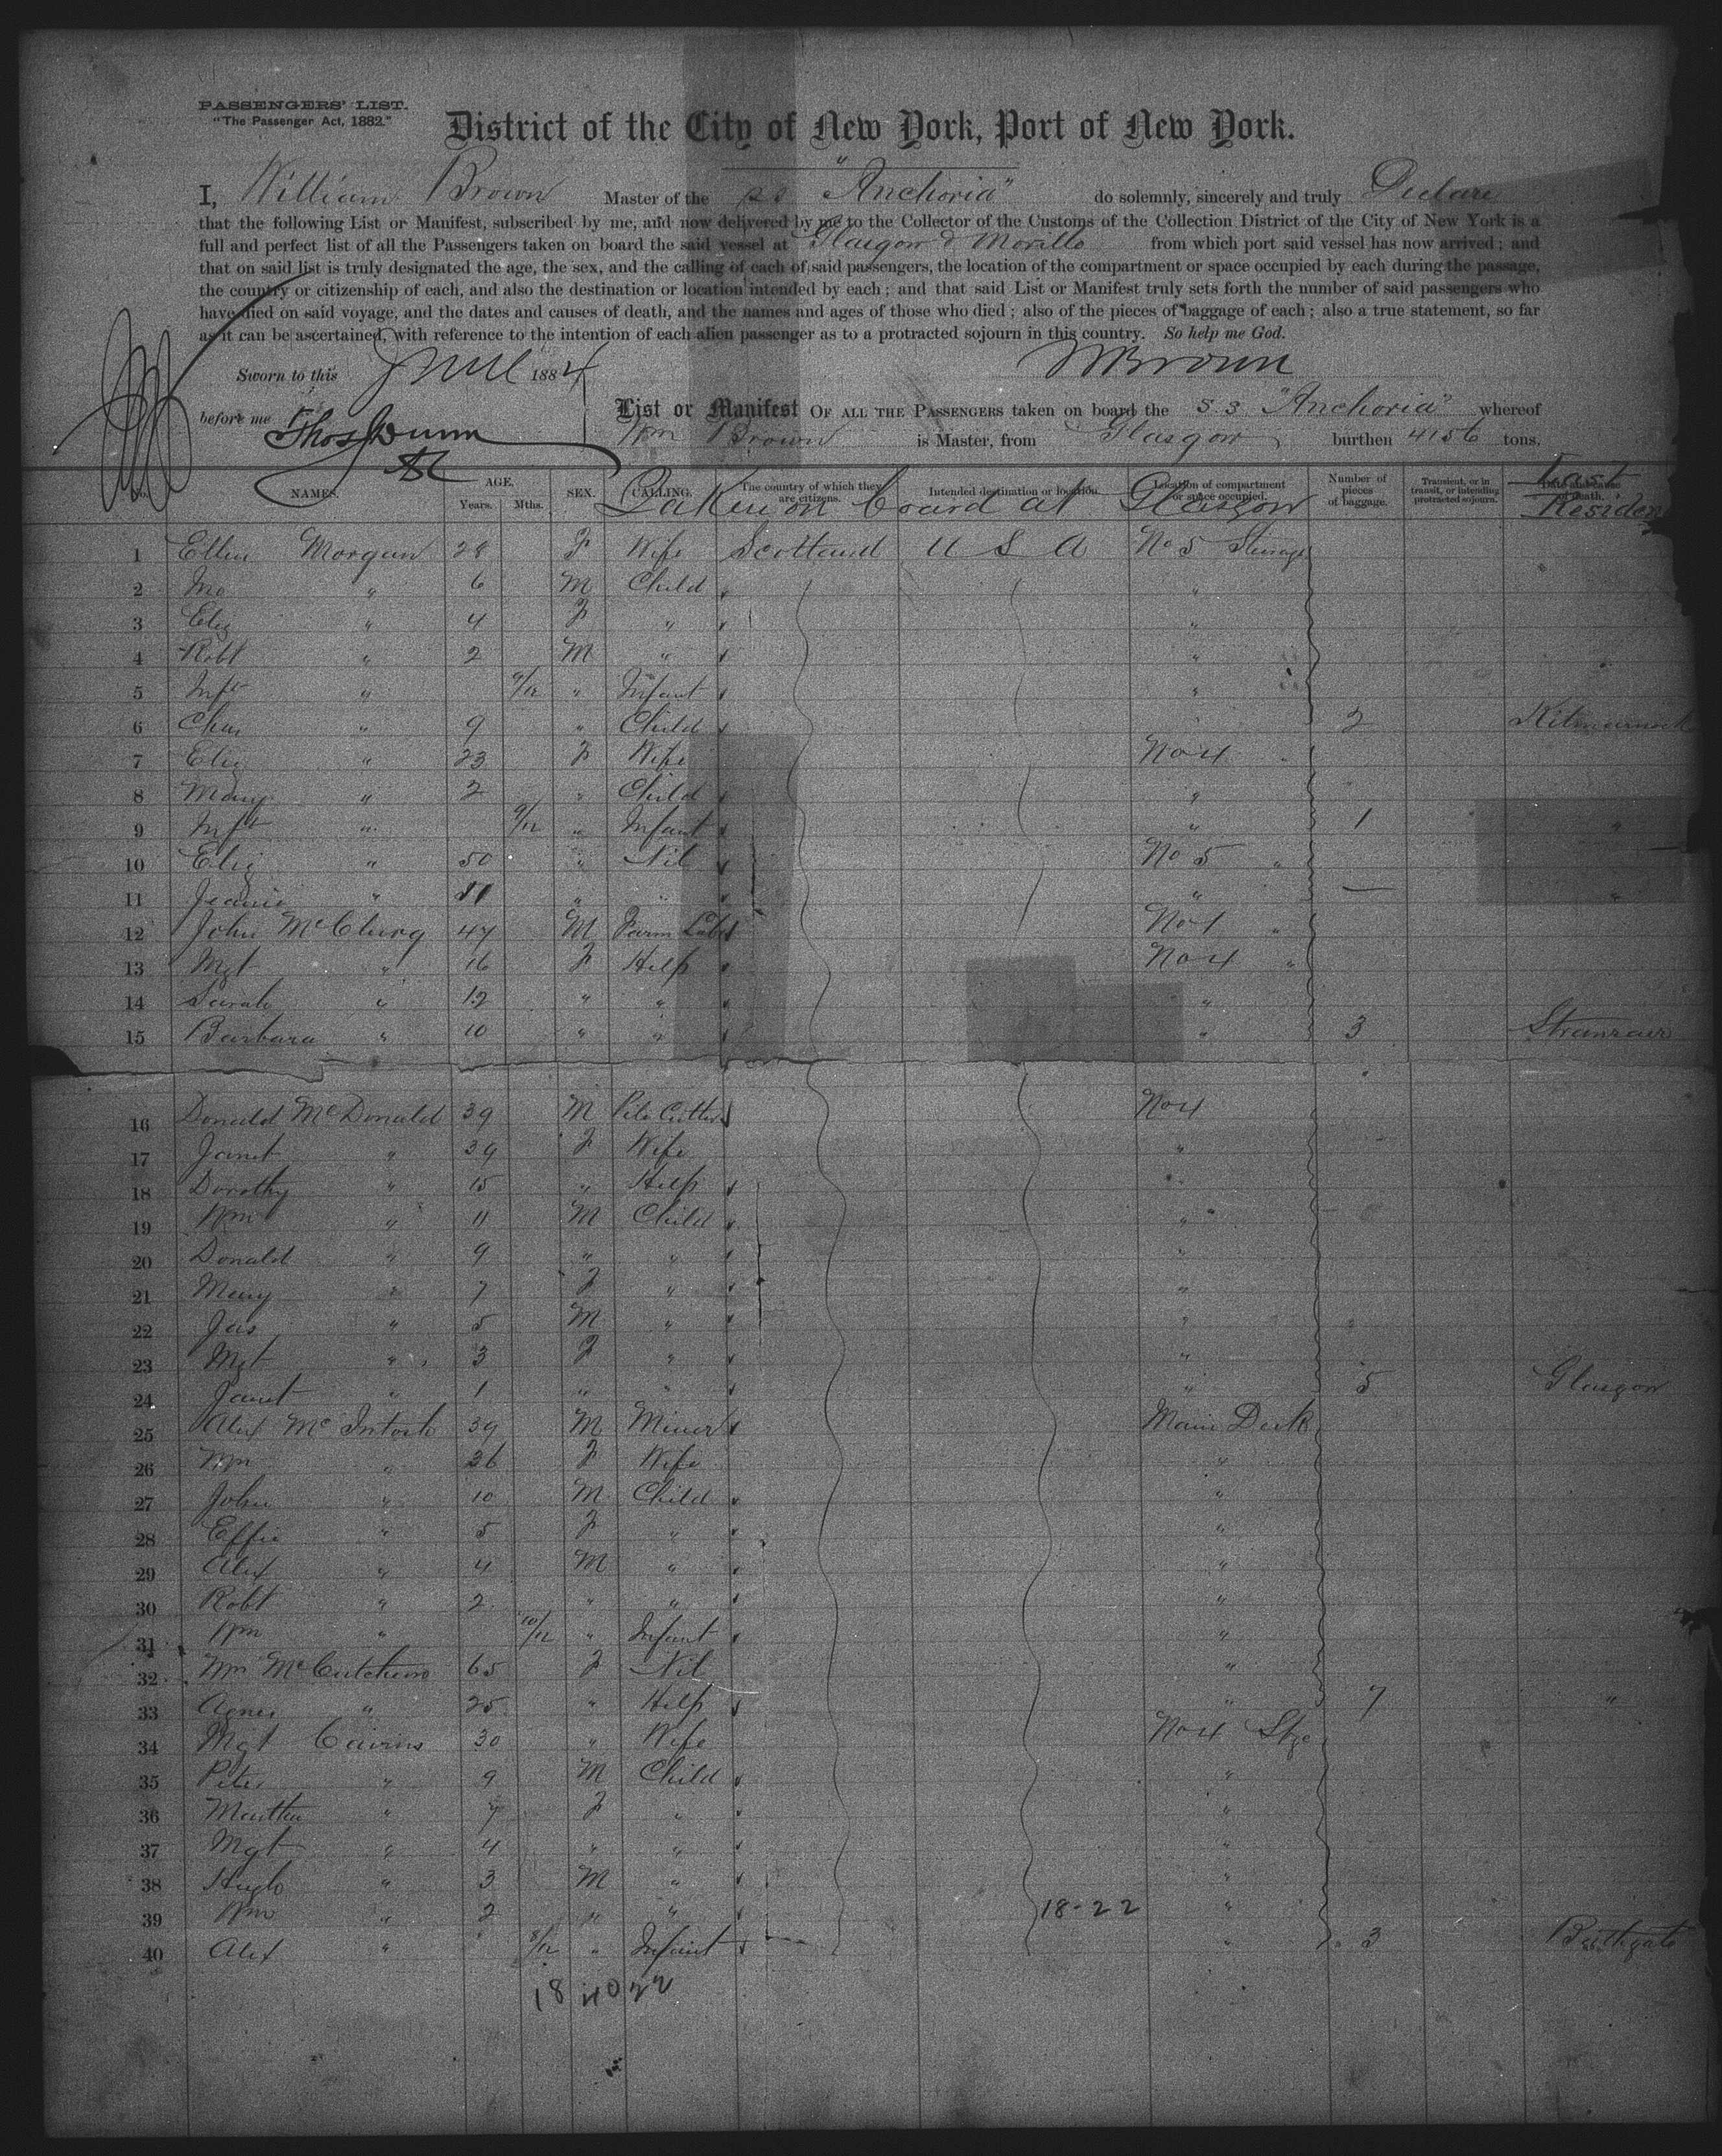 PASSENGERS' LIST.
"The Passenger Act, 1882."
District of the City of New York, Port of New York.
I, William Brown Master of the SS "Anchoria" do solemnly, sincerely and truly Declare
that the following List or Manifest, subscribed by me, and now delivered by me to the Collector of the Customs of the Collection District of the City of New York is a
full and perfect list of all the Passengers taken on board the said vessel at Glasgow & Moville from which port said vessel has now arrived; and
that on said list is truly designated the age, the sex, and the calling of each of said passengers, the location of the compartment or space occupied by each during the passage,
the country or citizenship of each, and also the destination or location intended by each; and that said List or Manifest truly sets forth the number of said passengers who
have died on said voyage, and the dates and causes of death, and the names and ages of those who died; also of the pieces of baggage of each; also a true statement, so far
as it can be ascertained, with reference to the intention of each alien passenger as to a protracted sojourn in this country. So help me God.
Sworn to this June 1884 WBrown
before me Thos Dunn
List or Manifest OF ALL THE PASSENGERS taken on board the S.S "Anchoria" whereof
Wm Brown is Master, from Glasgow, burthen 4156 tons.
No. NAMES. AGE. Years. Mths. SEX. CALLING. The country of which they are citizens. Intended destination or location. Location of compartment or space occupied. Number of pieces of baggage. Transient, or in transit, or intending protracted sojourn. Date and cause of death.
Taken on board at Glasgow Last Residen
1 Ellen Morgan 28 F Wife Scotland U S A No 5 Steerage
2 Jno " 6 M Child "
3 Eliz " 4 F " "
4 Robt " 2 M " "
5 Inft " 9/12 " Infant "
6 Chas " 9 " Child 2 Kilmarnock
7 Eliz " 23 F Wife No 4 "
8 Mary " 2 " Child "
9 Inft " 9/12 " Infant " 1 "
10 Eliz " 50 " Nil No 5 "
11 Jeanie " " " " — "
12 John McClurg 47 M Farm Labr No 1 "
13 Mgt " 16 F Help No 4 "
14 Sarah " 12 " " "
15 Barbara " 10 " " " 3 Stranraer
16 Donald McDonald 39 M File Cutter No 4
17 Janet " 39 F Wife "
18 Dorothy " 15 " Help "
19 Wm " 11 M Child "
20 Donald " 9 " " "
21 Mary " 7 F " "
22 Jas " 5 M " "
23 Mgt " 3 F " "
24 Janet " 1 " " " 5 Glasgow
25 Alex McIntosh 39 M Miner Main Deck
26 Wm " 36 F Wife "
27 John " 10 M Child "
28 Effie " 5 F " "
29 Alex " 4 M " "
30 Robt " 2 " " "
31 Wm " 10/12 " Infant "
32 Wm McCutcheon 65 F Nil "
33 Agnes " 25 " Help " 7 "
34 Mgt Cairns 30 " Wife No 4 Stge
35 Peter " 9 M Child "
36 Martha " 7 F " "
37 Mgt " 4 " " "
38 Hugh " 3 M " "
39 Wm " 2 " " 18-22 "
40 Alex " 8/12 " Infant " 3 Bathgate
18 40 22